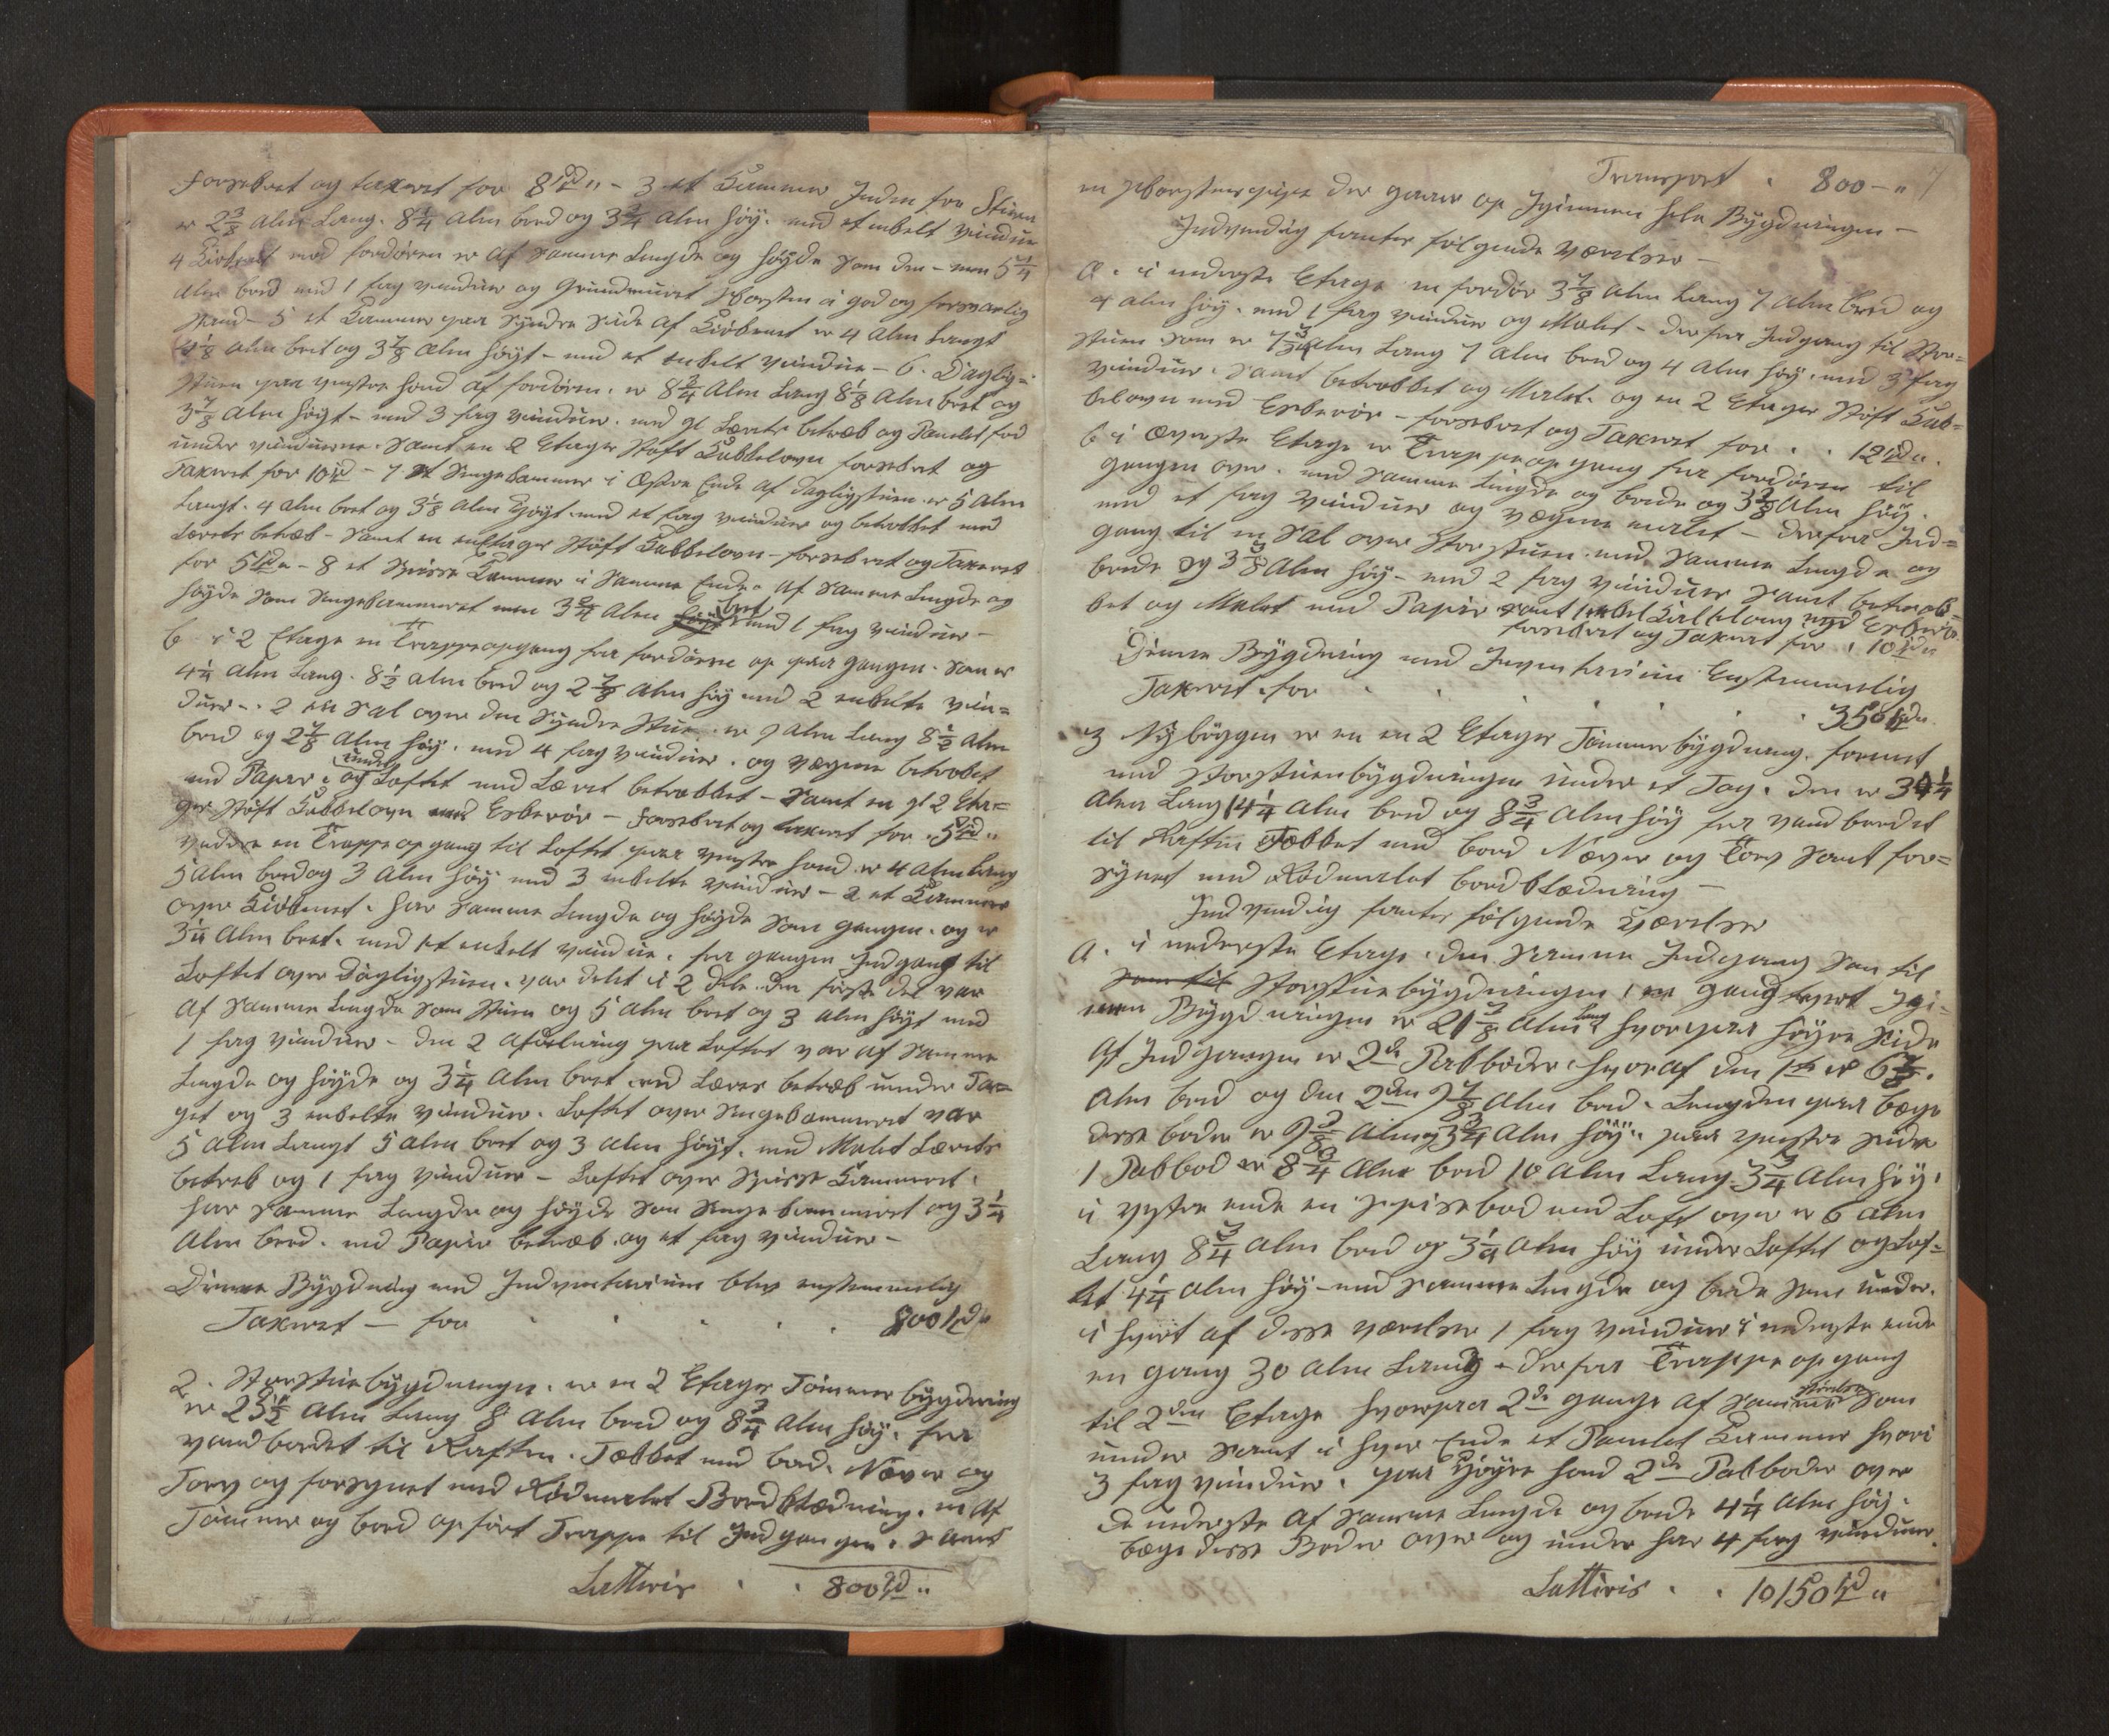 forsekret og taxeret for 8 rd„ - 3 et Kammer Inden for Stuen
er 2 3/8 Alen Lang. 8 1/4 Alen bred og 3 3/4 Alen høy. med et enkelt vindue
4 Kiøkenet med fordøren er af samme Lengde og høyde som den - men 5 1/4
Alen bred med 1 fag vinduer og Grundmuret Skorsten i god og forsvarlig
stand - 5 et Kammer paa Syndre Side af Kiøkenet er 4 Alen Langt
1/8 Alen bret og 3 7/8 Alen høyt - med et enkelt vindue - 6. Daglig=
stuen paa venstre hond af fordøren. er 8 3/4 Alen Lang 8 1/8 Alen bret og
3 7/8 Alen høyt - med 3 fag vinduer. med gl Lærets betræk og Panelet
under vinduerne. Samt en 2 Etager Støft Kakkelovn forsekret og
Taxeret for 10 rd - 7 Et Sengekammer i Østre Ende af dagligstuen er 5 Alen
Langt. 4 Alen bret og 3 7/8 Alen høyt med et fag vinduer og betrekket med
Lærets betræk - Samt en enEtager Støft Kakkelovn - forsekret og Taxeret
for 5 rd„ - 8 et Spisse Kammer i Samme Ende. af Samme Lengde og
høyde som Sengekammeret men 3 3/4 Alen bret med 1 fag vinduer -
b - i 2 Etage en Trappeopgang fra fordøren op paa gangen. som er
4 1/4 Alen Lang. 8 1/2 Alen bred og 2 7/8 Alen høy med 2 enkelte vin=
duer - . 2 en Sal over den Syndre Stue. er 9 Alen Lang 8 1/2 Alen
bred og 2 7/8 Alen høy. med 4 fag vinduer. og vægene betrekket
med Papir. og under Loftet med Læret betrækket - Samt en gl 2 Eta=
ger Støft Kakkelovn med Eskerør - forsekret og taxeret for 5 rd„
videre en Trappe op gang til Loftet paa venstre hond er 4 Alen Lang
5 Alen bred og 3 Alen høy med 3 enkelte vinduer - 2 et Kammer
over Kiøkenet. har samme Lengde og høyde som gangen. og er
3 1/4 Alen bret. med 1 et enkelt vindue. fra gangen Indgang til
Loftet over Dagligstuen. var delt i 2 dele. den første del var
af Samme Lengde som Stuen og 5 Alen bret og 3 Alen høyt med
1 fag vinduer - den 2 Afdelning paa Loftet var af Samme
Lengde og høyde og 3 1/4 Alen bret med Læret betræk under Ta=
get og 3 enkelte vinduer. Loftet over Sengekammeret var
5 Alen Langt 5 Alen bret og 3 Alen høyt. med Malet Lærets
betræk og 1 fag vinduer - Loftet over Spisse Kammeret.
har Samme Lengde og høyde som Sengekammeret og 3 1/4
Alen bred. med Papir betræk og et fag vinduer -
Denne Bygdning med Indventarium blev enstemmelig
Taxeret - for . . . . . 800 rd„
2. Storstuebygdningen. er en 2 Etager Tømmer bygdning
er 23 1/2 Alen Lang 8 Alen bred og 8 3/4 Alen høy. fra
vandbordet til Raften. Tækket med bord. Næver og
Torv og forsynet med Rødmalet Bordklædning. en af
Tømmer og bord opført Trappe til Indgangen. samt
Latteris . . 800 rd„
Transport . 800 - „ 7
en skorstenspipe der gaaer op Igiennem hele Bygdningen -
Indvendig fantes følgende værelser -
a. i nederste Etage en fordør 3 7/8 Alen Lang 7 Alen bred og
4 Alen høy. med 1 fag vinduer og Malet - derfra Indgang til Stor=
stuen som er 7 3/4 Alen Lang 7 Alen bred og 4 Alen høy. med 3 fag
vinduer. samt betrækket og Malet. og en 2 Etager Støft Kak=
kelovn med Eskerør - forsekret og Taxeret for . . 12 rd„
b i Øverste Etage er Trappeopgang fra fordøren til
gangen over. med samme Lengde og brede og 3 3/8 Alen høy.
med et fag vinduer og vægene malet - derfra Ind=
gang til en Sal over Storstuen med samme Lengde og
brede og 3 3/8 Alen høy - med 2 fag vinduer samt betræk=
ket og Malet med Papir samt Kakkelovn med Eskerør
forsekret og Taxeret for . 10 rd„
Denne Bygdning med Inventarium Enstemmelig
Taxeret. for . . . . 350 rd„
3 Nybyggen er en en 2 Etager Tømmerbygdning. forenet
med Storstuebygdningen under et Tag. den er 34 1/4
Alen Lang 14 1/4 Alen bred og 8 3/4 Alen høy fra vandbordet
til Raften Tækket med bord Næver og Torv samt for=
synet med Rødmalet bordklædning -
Indvendig fantes følgende værelser
a. i nederste Etage. den samme Indgang som til
som til Storstuebygdningen, en gang tvert Igi=
nem Bygdningen er 21 3/8 Alen lang hvorpaa høyre Side
af Indgangen er 2de Pakboder. hvoraf den 1te er 6 7/8.
Alen bred og den 2den 9 7/8 Alen bred. Lengden paa bege
disse boder er 9 3/8 Alen og 3 3/4 Alen høy. paa venstre Side
1 Pakbod er 8 3/4 Alen bred 10 Alen Lang 3 3/4 Alen høy.
i vestre ende en spisebod med Loft over er 6 Alen
Lang 8 3/4 Alen bred og 3 1/4 Alen høy under Loftet og Lof=
tet 4 1/4 Alen høy - med samme Lengde og brede som under.
i hvert af disse værelser 1 fag vinduer i nederste ende
en gang 30 Alen Lang - derfra Trappe opgang
til 2den Etage hvorpaa 2de gange af samme størelse som
under samt i hver Ende et Panelet Kammer hvori
3 fag vinduer. paa Høyre hond 2de Pakboder over
de nederste af samme Lengde og brede 4 1/4 Alen høy.
bege disse Boder over og under har 4 fag vinduer.
Latteris . . 10150 rd„